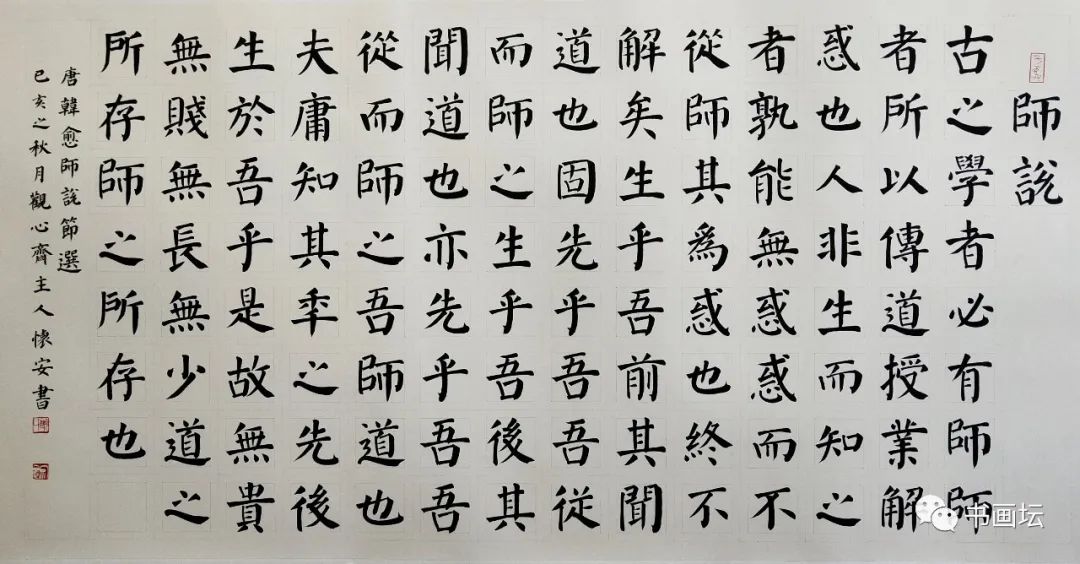 師說
古之學者必有師師
者所以傳道授業解
惑也人非生而知之
者孰能無惑惑而不
從師其爲惑也終不
解矣生乎吾前其聞
道也固先乎吾吾從
而師之生乎吾後其
聞道也亦先乎吾吾
從而師之吾師道也
夫庸知其秊之先後
生於吾乎是故無貴
無賤無長無少道之
所存師之所存也
唐韓愈師說節選
已亥之秋月觀心齋主人懷安書
书画坛